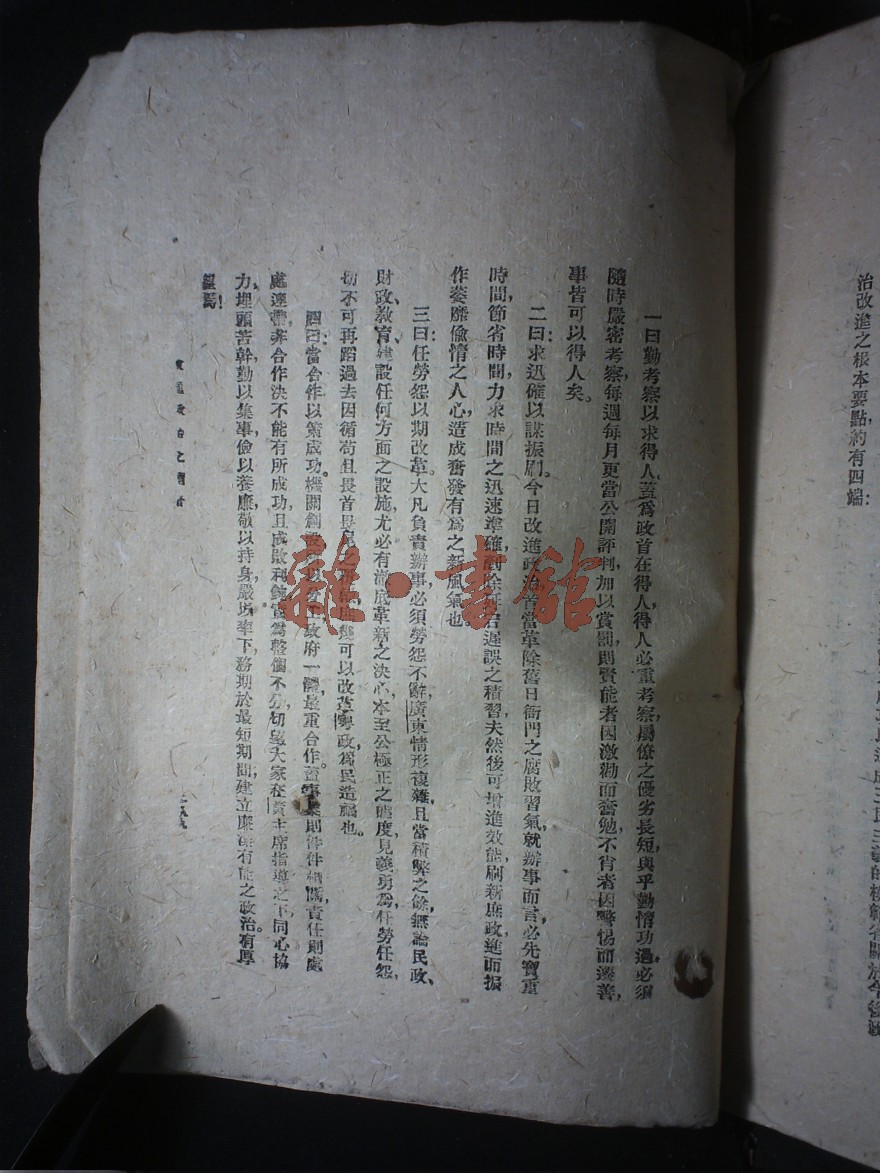 治改進之根本要點,約有四端:
一曰:勤考察以求得人。蓋爲政首在得人,得人必重考察,屬僚之優劣長短,與乎勤惰功過,必須
隨時嚴密考察,每週每月更當公開評判,加以賞罰,則賢能者因激勸而奮勉,不肖者因警惕而遷善,
事皆可以得人矣。
二曰:求迅確以謀振刷。今日改進政治,首當革除舊日衙門之腐敗習氣,就辦事而言,必先寶重
時間,節省時間,力求時間之迅速準確,剷除 遲誤之積習,夫然後可增進效能,刷新庶政,進而振
作萎靡偷惰之人心,造成奮發有爲之新風氣也
三曰:任勞怨以期改革。大凡負責辦事,必須勞怨不辭,廣東情形複雜,且當積弊之餘,無論民政、
財政、教育、建設任何方面之設施,尤必有澈底革新之決心,本至公極正之態度,見義勇爲,任勞任怨,
切不可再蹈過去因循苟且畏首畏尾之 可以改革粵政,爲民造福也。
四曰:當合作以策成功。機關 政府一體,最重合作。 則件件 責任則處
處連帶,非合作決不能有所成功,且成敗利鈍,實爲整個不分,切望大家在黃主席指導之下,同心協
力,埋頭苦幹,勤以集事,儉以養廉,敬以持身,嚴以率下,務期於最短期間,建立廉潔有能之政治。有厚
望焉!
政治之
雜·書館